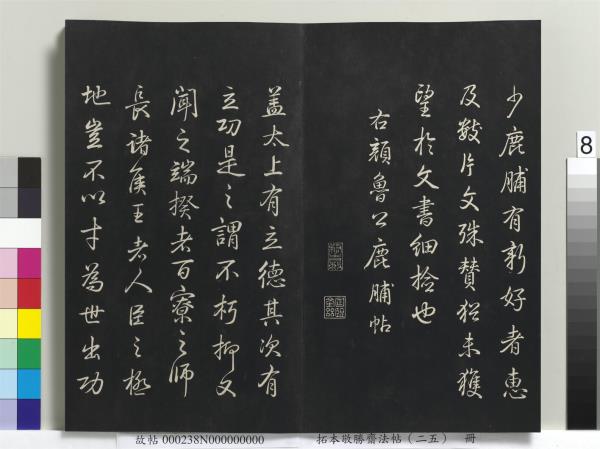 少鹿脯有新好者惠
及數片文殊贊猶未獲
望於文書細捡也
右顏魯公鹿脯帖
蓋太上有立德其次有
立功是之謂不朽抑又
聞之端揆者百寮之師
長諸侯王者人臣之極
地豈不以才為世出功
8
故帖 000238N000000000 拓本敬勝齋法帖(二五) 冊